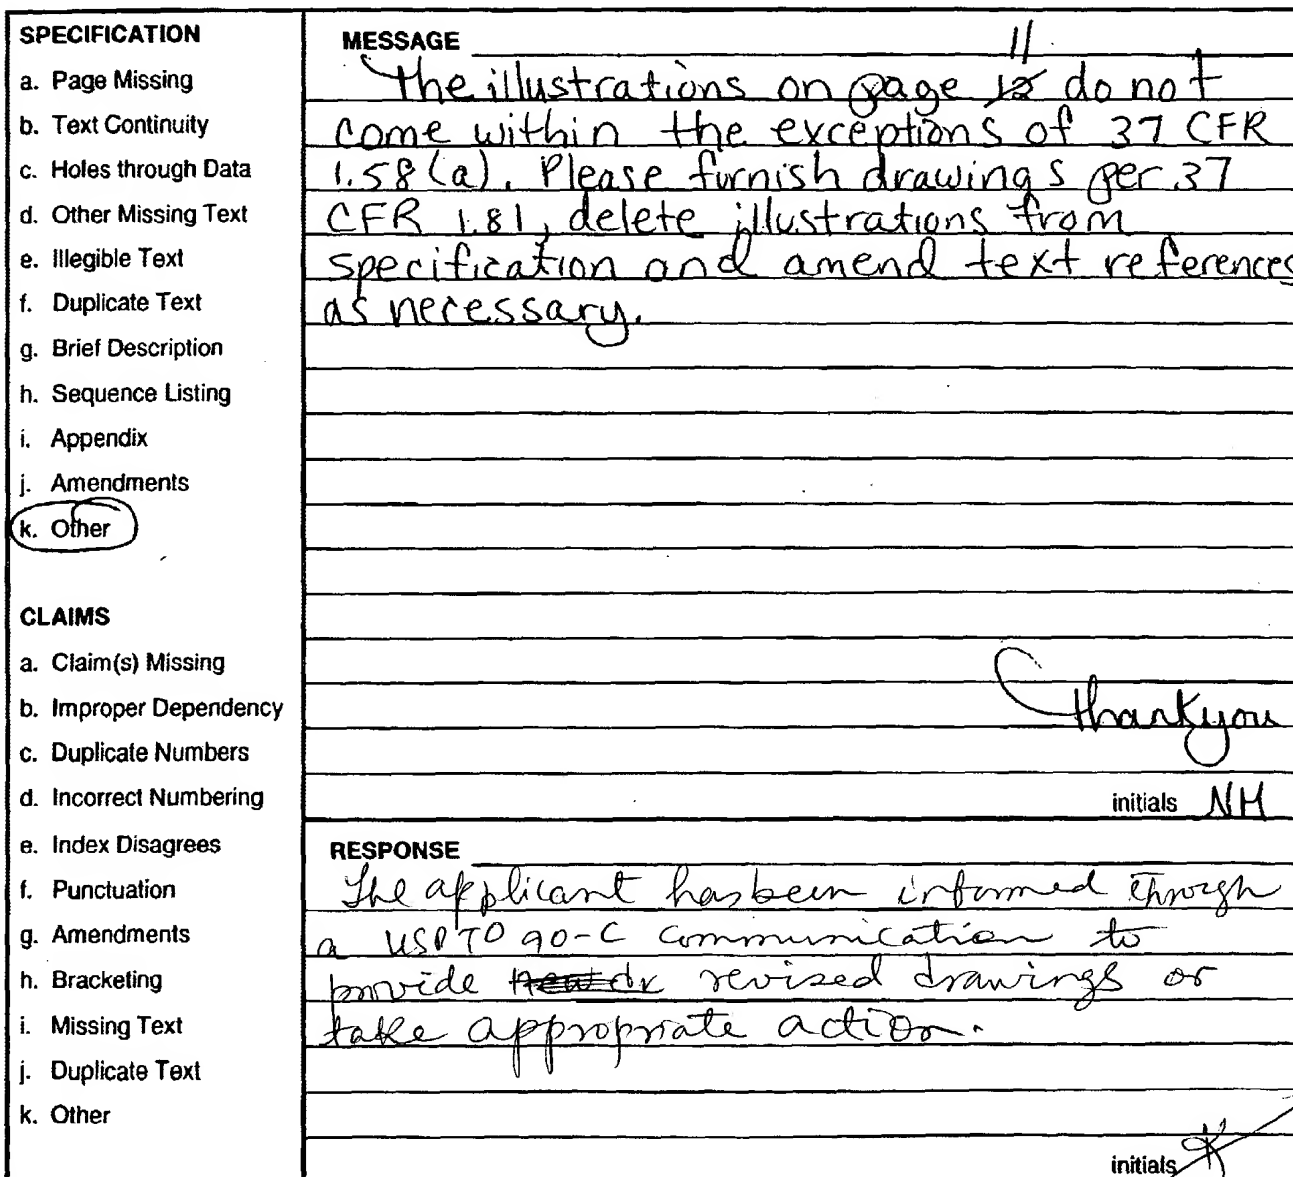 SPECIFICATION
a. Page Missing
b. Text Continuity
c. Holes through Data
d. Other Missing Text
e. Illegible Text
f. Duplicate Text
g. Brief Description
h. Sequence Listing
i. Appendix
j. Amendments
k. Other
CLAIMS
a. Claim(s) Missing
b. Improper Dependency
c. Duplicate Numbers
d. Incorrect Numbering
e. Index Disagrees
f. Punctuation
g. Amendments
h. Bracketing
i. Missing Text
j. Duplicate Text
k. Other
MESSAGE
11
The illustrations on page 12 do not
come within the exceptions of 37 CFR
1.58(a). Please furnish drawings per 37
CFR 1.81, delete illustrations from
specification and amend text references
as necessary.
Thankyou
initials NH
RESPONSE
The applicant has been informed through
a USPTO 90-C communication to
provide revised drawings or
take appropriate action.
initials